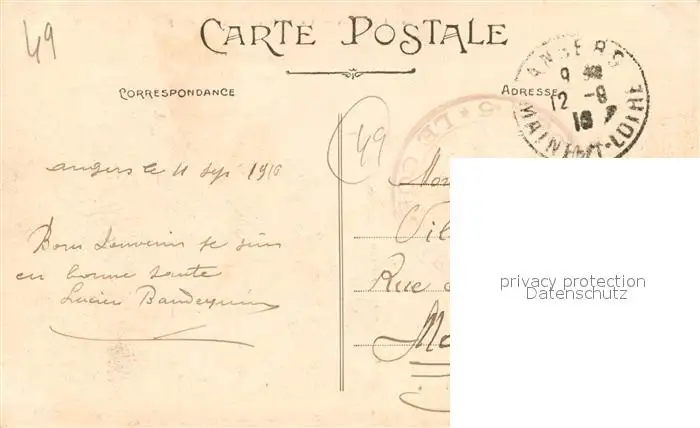 49
CARTE POSTALE
CORRESPONDANCE
ADRESSE
ANGERS
9
12 - 8
16
MAINE-ET-LOIRE
49
LE
angers le 11 Sep 1916
Bons Souvenirs je suis
en bonne sante
Lucien
Mon
Vil
Rue
Mo
privacy protection
Datenschutz